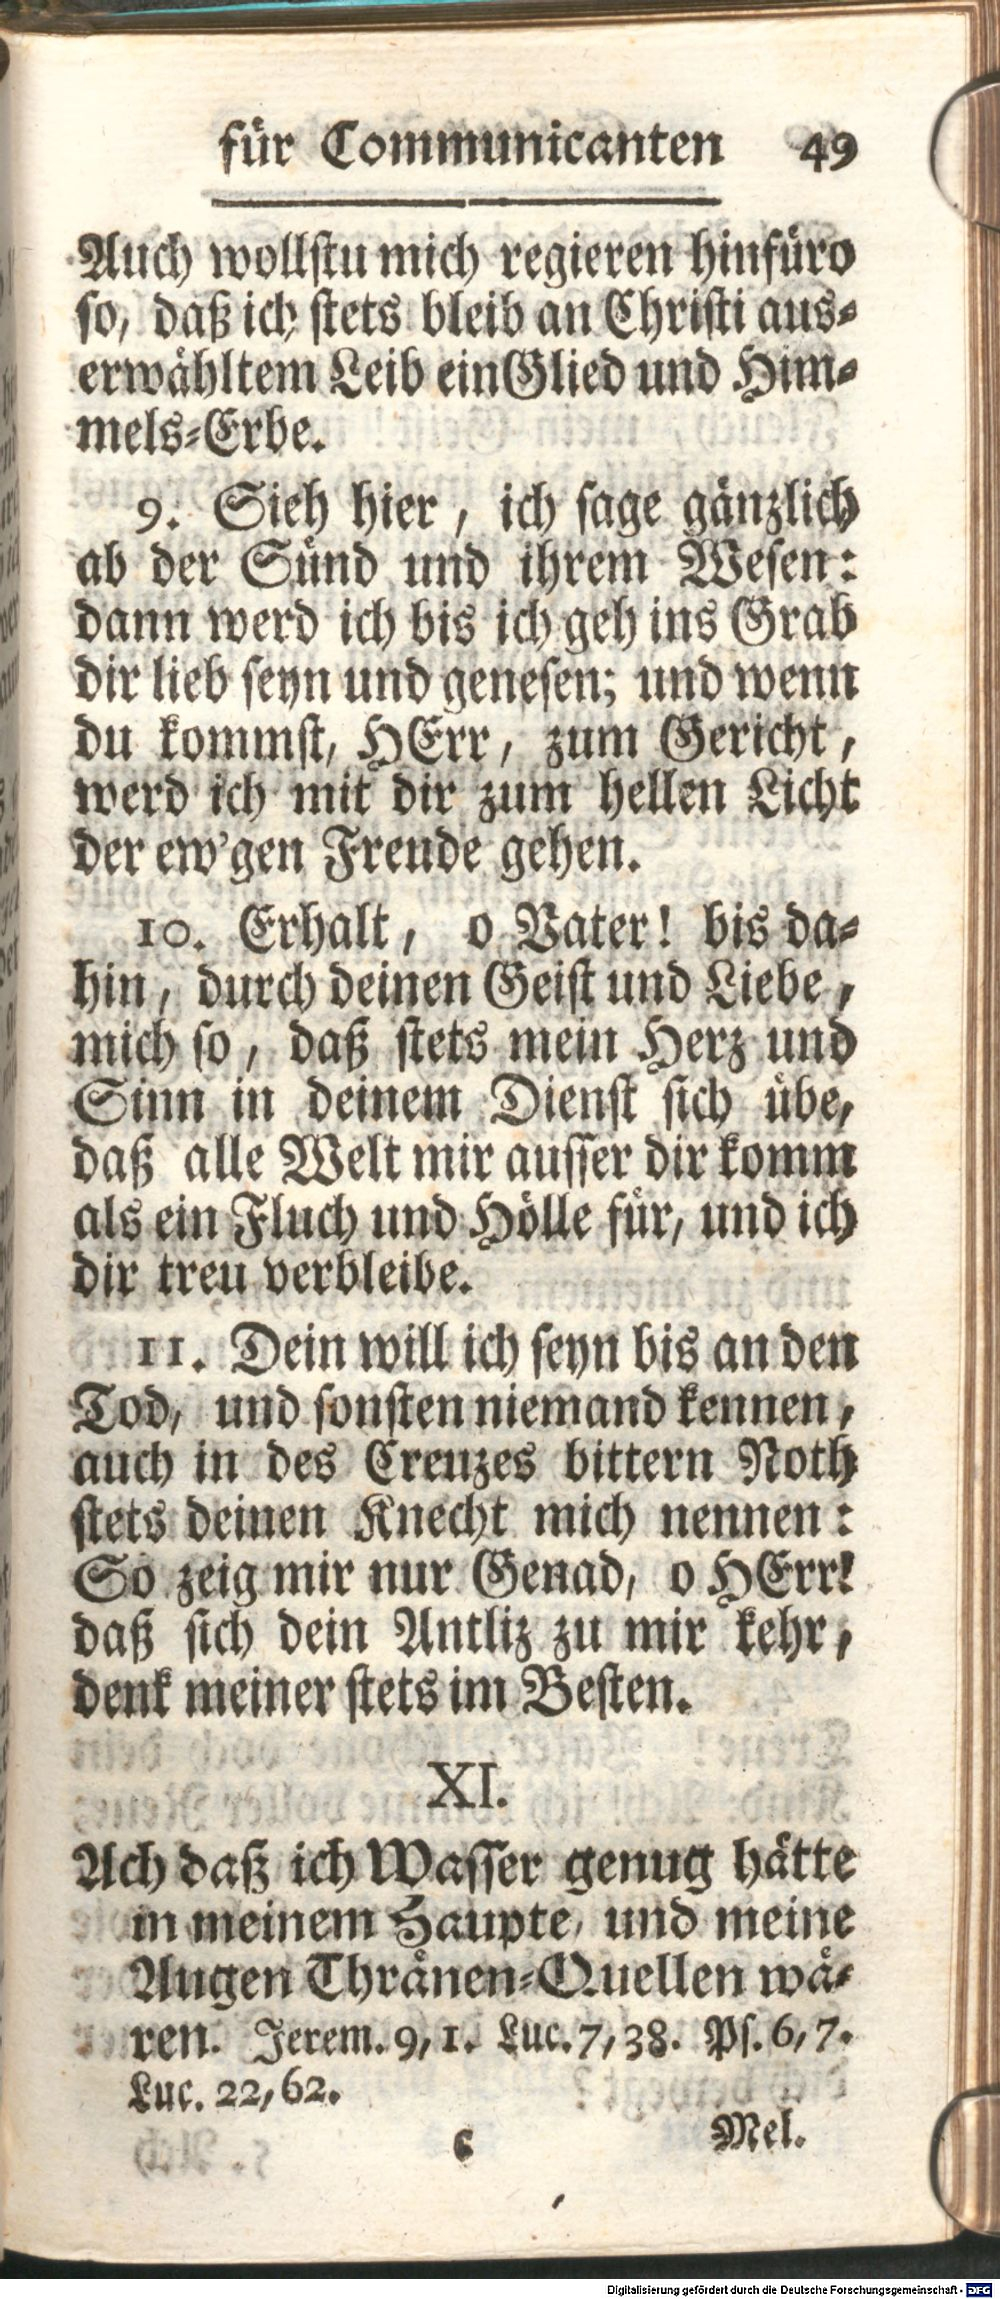 für Communicanten 49
Auch wollstu mich regieren hinfüro
so, daß ich stets bleib an Christi aus-
erwähltem Leib ein Glied und Him-
mels-Erbe.
9. Sieh hier, ich sage gänzlich
ab der Sünd und ihrem Wesen:
dann werd ich bis ich geh ins Grab
dir lieb seyn und genesen; und wenn
du kommst, HErr, zum Gericht,
werd ich mit dir zum hellen Licht
der ew'gen Freude gehen.
10. Erhalt, o Vater! bis da-
hin, durch deinen Geist und Liebe,
mich so, daß stets mein Herz und
Sinn in deinem Dienst sich übe,
daß alle Welt mir ausser dir komm
als ein Fluch und Hölle für, und ich
dir treu verbleibe.
11. Dein will ich seyn bis an den
Tod, und sonsten niemand kennen,
auch in des Creuzes bittern Noth
stets deinen Knecht mich nennen:
So zeig mir nur Genad, o HErr!
daß sich dein Antliz zu mir kehr,
denk meiner stets im Besten.
XI.
Ach daß ich Wasser genug hätte
in meinem Haupte, und meine
Augen Thränen-Quellen wä-
ren. Jerem. 9, 1. Luc. 7, 38. Ps. 6, 7.
Luc. 22, 62.
C Mel.
Digitalisierung gefördert durch die Deutsche Forschungsgemeinschaft - DFG